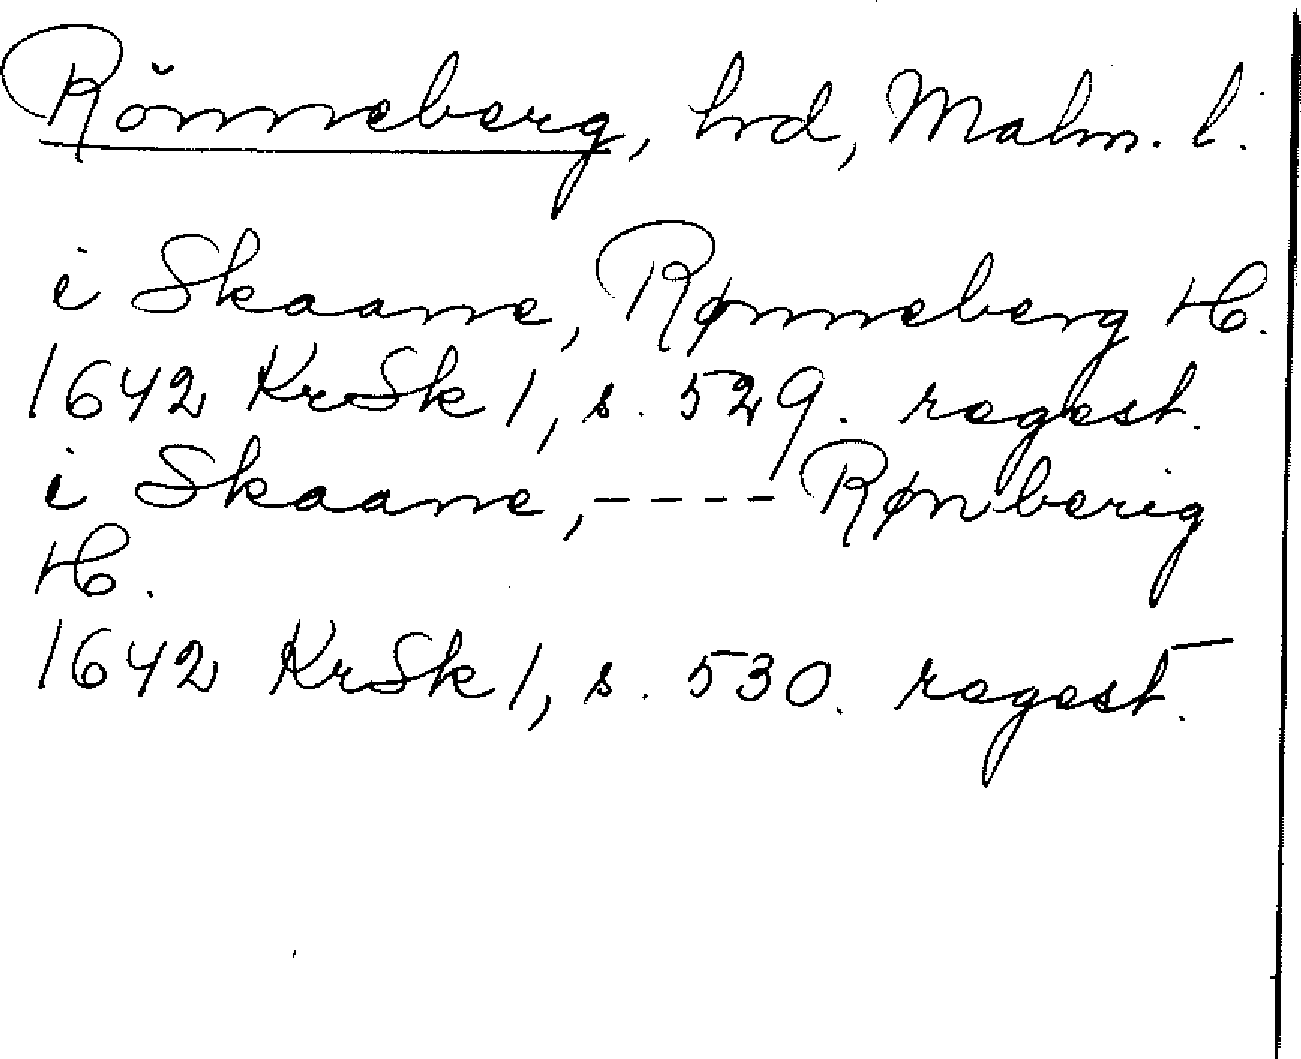 Rönneberg, hrd, Malm. l.
i Skaane, Rønneberg H.
1642 KrSk 1, s. 529. regest.
i Skaane, ---- Rønberig
H.
1642 KrSk 1, s. 530. regest.